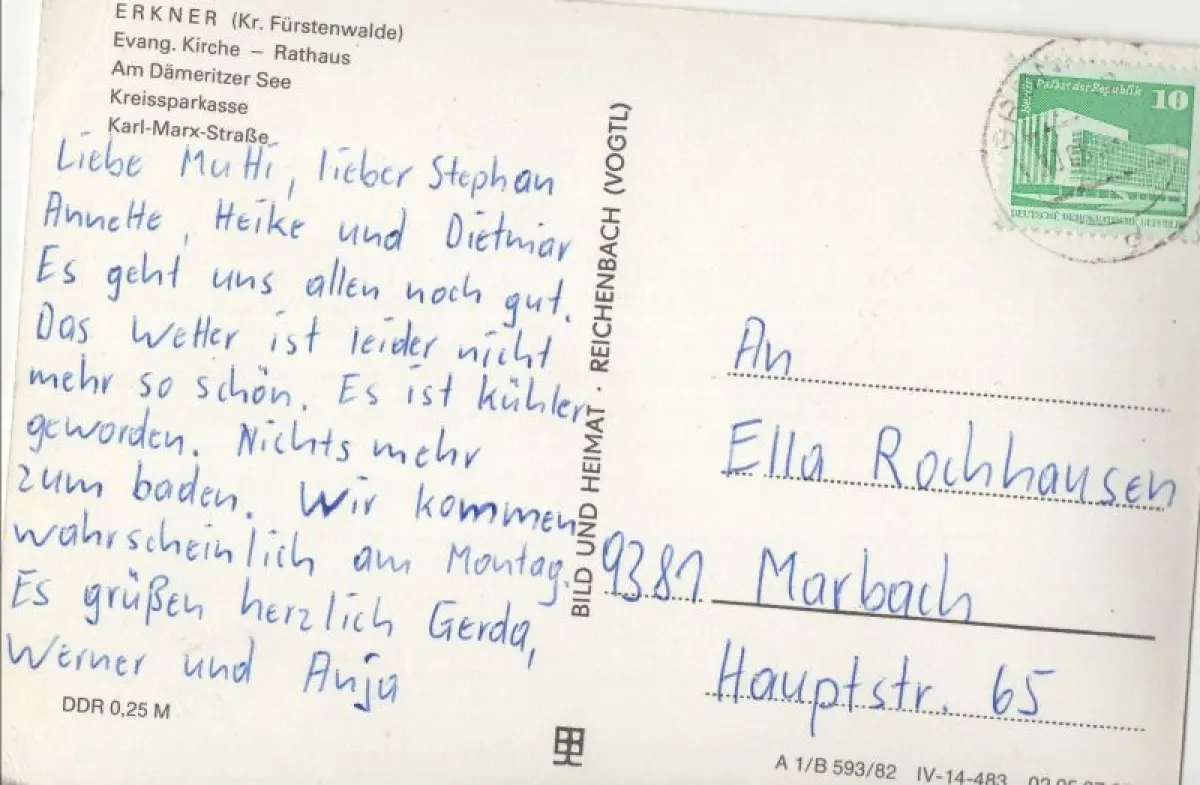 ERKNER (Kr. Fürstenwalde)
Evang. Kirche – Rathaus
Am Dämeritzer See
Kreissparkasse
Karl-Marx-Straße
Liebe Mutti, lieber Stephan
Annette, Heike und Dietmar
Es geht uns allen noch gut.
Das Wetter ist leider nicht
mehr so schön. Es ist kühler
geworden. Nichts mehr
zum baden. Wir kommen
wahrscheinlich am Montag.
Es grüßen herzlich Gerda,
Werner und Anja
DDR 0,25 M
BILD UND HEIMAT · REICHENBACH (VOGTL)
Berlin Palast der Republik 10
DEUTSCHE DEMOKRATISCHE REPUBLIK
An
Ella Rochhausen
9381 Marbach
Hauptstr. 65
A 1/B 593/82 IV-14-483